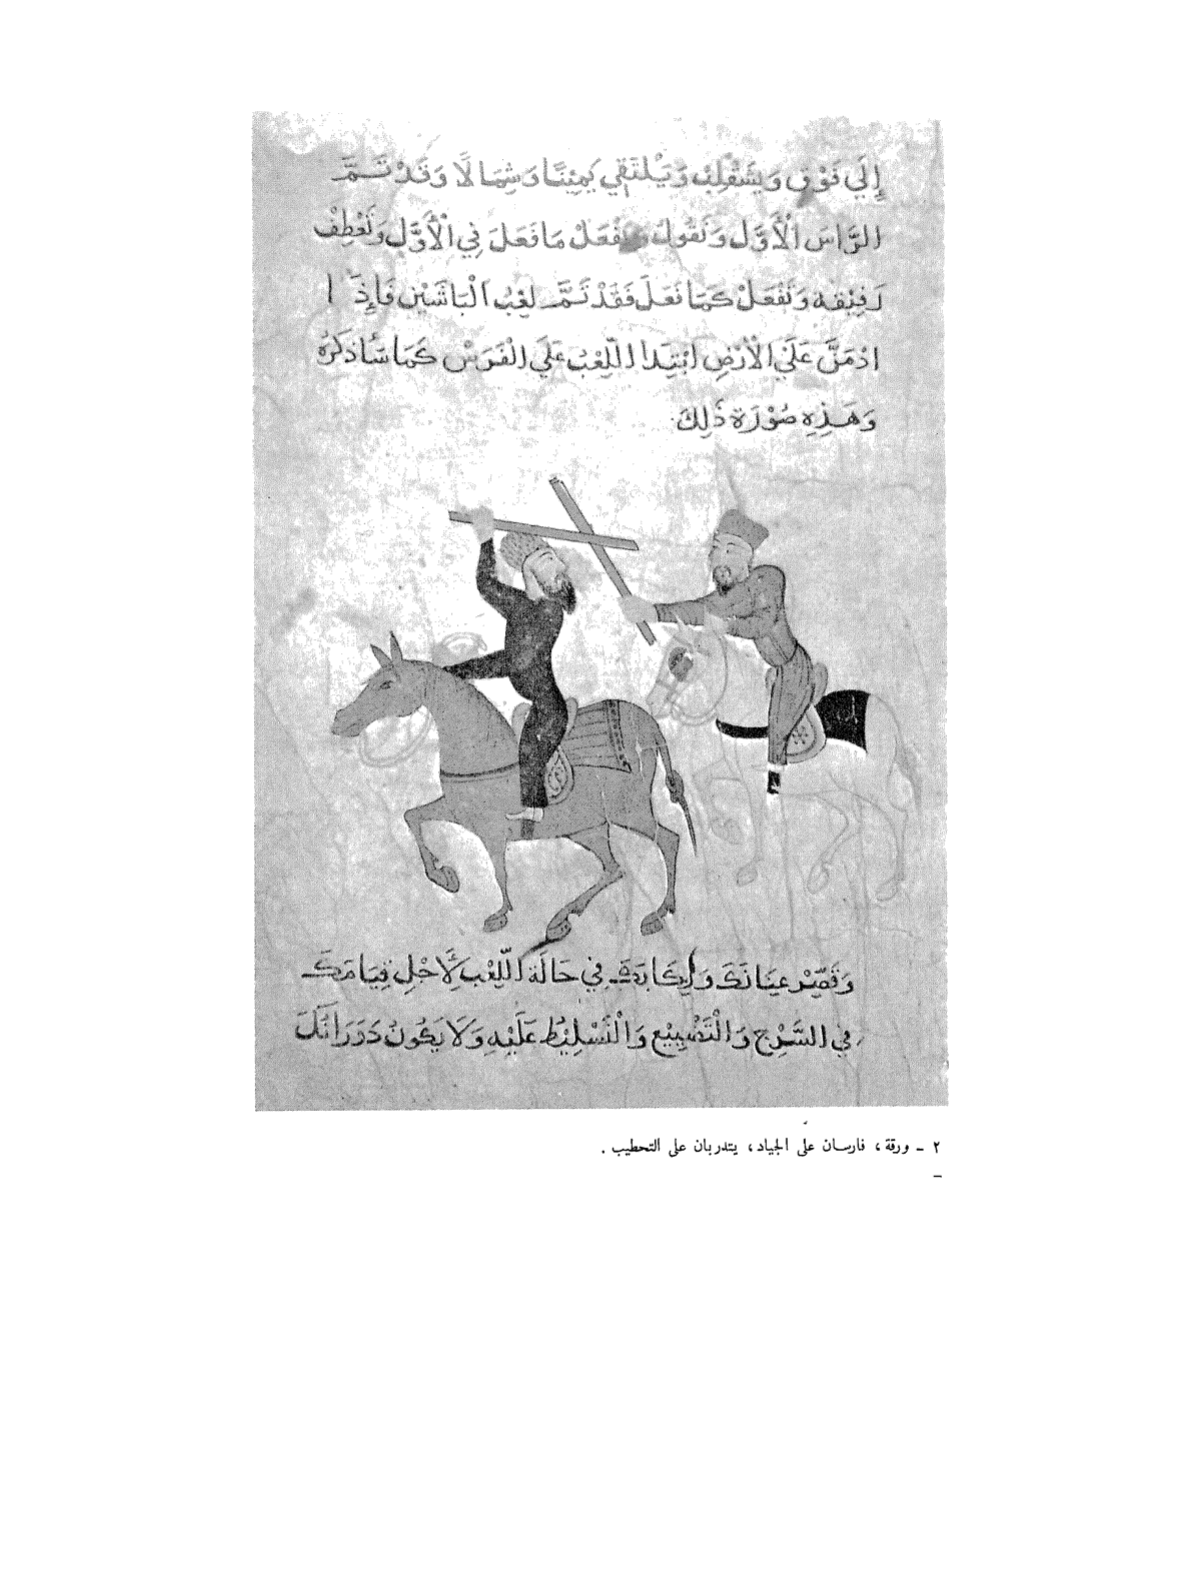 إِلَي فَوْقٍ وَيَنْقَلِبْ وَيَلْتَقِي يَمِيْنًا وَشِمَالًا وَقَدْ تَمَّ
الرَّاسَ الْأَوَّل وَتَقُولْ وَتَفْعَلْ مَا فَعَلَ فِي الْأَوَّل وَتَعْطِفْ
رَفِيْقَهُ وَتَفْعَلْ كَمَا فَعَلَ فَقَدْ تَمَّ لِعْبُ الْبَاشَيْنِ فَإِذَا
ادْمَنَّ عَلَي الْأَرْضِ ابْتِدَا اللِّعْبُ عَلَي الْفَرَسْ كَمَا سَأَذْكُرُهُ
وَهَذِهِ صُوْرَة ذَلِكَ
وَقَصِّرْ عِنَانَكَ وَرِكَابَكَ فِي حَالَة اللِّعْب لِأَجْلِ قِيَامَكَ
فِي السَّرْجِ وَالتَّضْيِيْعِ وَالتَّسْلِيْطُ عَلَيْهِ وَلَا يَكُونُ
٢ – ورقة، فارسان على الجياد، يتدربان على التحطيب .